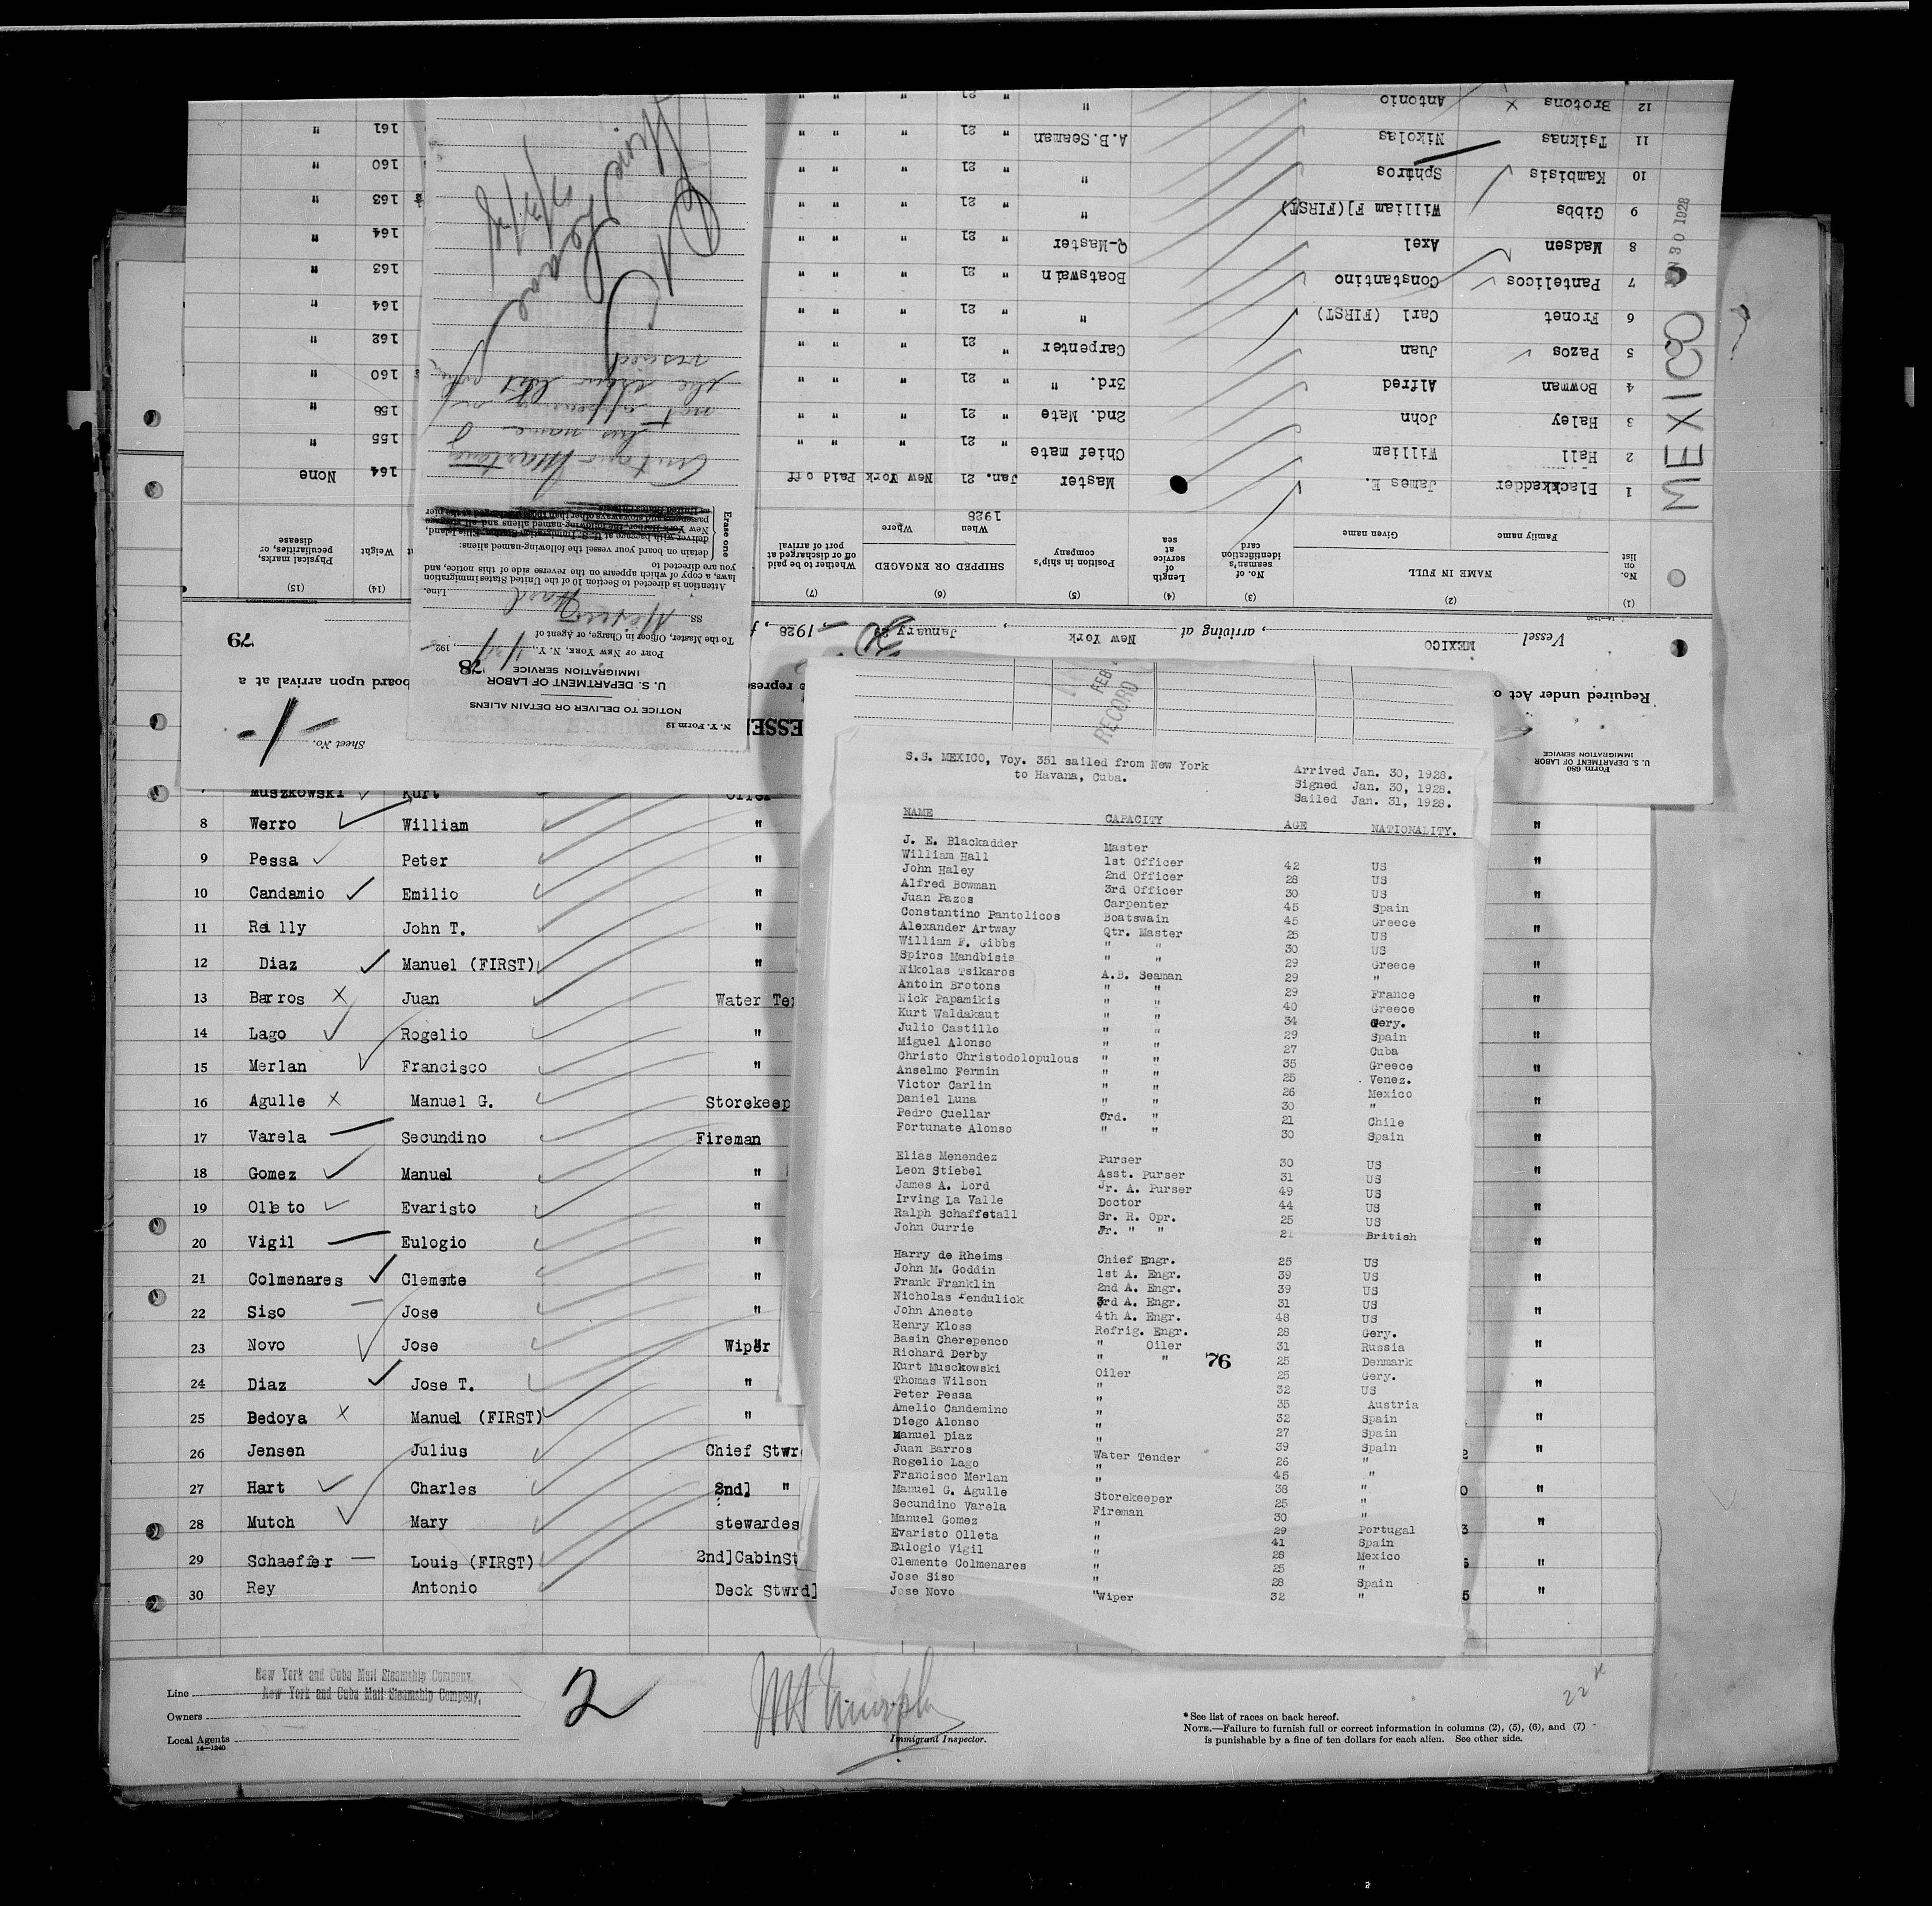 12 Brotons X Antonio " " 21 " " "
11 Tsiknas Nikolas A.B.Seaman " 21 " " " 161 "
10 Kambisis Sphiros " " 21 " " " 160 "
9 Gibbs William F](FIRST) " " 21 " " " 163 "
8 Madsen Axel Q-Master " 21 " " " 164 "
7 Pantelicos Constantino Boatswain " 21 " " " 163 "
6 Fronet Carl (FIRST) " " 21 " " " 164 "
5 Pazos Juan Carpenter " 21 " " " 162 "
4 Bowman Alfred 3rd. " " 21 " " " 160 "
3 Haley John 2nd. Mate " 21 " " " 158 "
2 Hall William Chief mate " 21 " " " 155 "
1 Blackkadder James E. Master Jan. 21 New York Paid off 164 None
1928
MEXICO
30 1928
(1) No. on list
(2) NAME IN FULL Family name Given name
(3) No. of seaman's identification card
(4) Length of service at sea
(5) Position in ship's company
(6) SHIPPED OR ENGAGED When Where
(7) Whether to be paid off or discharged at port of arrival
(14) Weight
(15) Physical marks, peculiarities, or disease
Vessel MEXICO, arriving at New York, January 29, 1928, f
79
Required under Act o
board upon arrival at a
Sheet No. -1-
Form 680
U. S. DEPARTMENT OF LABOR
IMMIGRATION SERVICE
N. Y. Form 12
NOTICE TO DELIVER OR DETAIN ALIENS
U. S. DEPARTMENT OF LABOR
IMMIGRATION SERVICE
78
PORT OF NEW YORK, N. Y., 192
To the Master, Officer in Charge, or Agent of
SS. Mexico Ward Line.
Attention is directed to Section 10 of the United States immigration
laws, a copy of which appears on the reverse side of this notice, and
you are directed to
detain on board your vessel the following-named aliens:
Erase one
his name
not appearing
S.S. MEXICO, Voy. 351 sailed from New York
to Havana, Cuba.
Arrived Jan. 30, 1928.
Signed Jan. 30, 1928.
Sailed Jan. 31, 1928.
FEB
RECORD
NAME CAPACITY AGE NATIONALITY.
J. E. Blackadder Master
William Hall 1st Officer 42 US
John Haley 2nd Officer 28 US
Alfred Bowman 3rd Officer 30 US
Juan Pazos Carpenter 45 Spain
Constantino Pantolicos Boatswain 45 Greece
Alexander Artway Qtr. Master 25 US
William F. Gibbs " " 30 US
Spiros Mandbisis " " 29 Greece
Nikolas Tsikaros A.B. Seaman 29 "
Antoin Brotons " " 29 France
Nick Papamikis " " 40 Greece
Kurt Waldakaut " " 34 Gery.
Julio Castillo " " 29 Spain
Miguel Alonso " " 27 Cuba
Christo Christodolopulous " " 35 Greece
Anselmo Fermin " " 25 Venez.
Victor Carlin " " 26 Mexico
Daniel Luna " " 30 "
Pedro Cuellar Ord. " 21 Chile
Fortunate Alonso " " 30 Spain
Elias Menendez Purser 30 US
Leon Stiebel Asst. Purser 31 US
James A. Lord Jr. A. Purser 49 US
Irving La Valle Doctor 44 US
Ralph Schaffetall Sr. R. Opr. 25 US
John Currie Jr. " " 21 British
Harry de Rheims Chief Engr. 25 US
John M. Goddin 1st A. Engr. 39 US
Frank Franklin 2nd A. Engr. 39 US
Nicholas Pendulick 3rd A. Engr. 31 US
John Aneste 4th A. Engr. 48 US
Henry Kloss Refrig. Engr. 28 Gery.
Basin Cherepenco " Oiler 31 Russia
Richard Derby " " 25 Denmark
Kurt Musckowski Oiler 25 Gery.
Thomas Wilson " 32 US
Peter Pessa " 35 Austria
Amelio Candemino " 32 Spain
Diego Alonso " 27 Spain
Manuel Diaz " 39 Spain
Juan Barros Water Tender 26 "
Rogelio Lago " 45 "
Francisco Merlan " 38 "
Manuel G. Agulle Storekeeper 25 "
Secundino Varela Fireman 30 "
Manuel Gomez " 29 Portugal
Evaristo Olleta " 41 Spain
Eulogio Vigil " 28 Mexico
Clemente Colmenares " 25 "
Jose Siso " 28 Spain
Jose Novo "Wiper 32 "
76
Muszkowski Kurt Oiler
8 Werro William " "
9 Pessa Peter " "
10 Candamio Emilio " "
11 Reilly John T. " "
12 Diaz Manuel (FIRST) " "
13 Barros X Juan Water Te "
14 Lago Rogelio " "
15 Merlan Francisco " "
16 Agulle X Manuel G. Storekeep "
17 Varela Secundino Fireman "
18 Gomez Manuel " "
19 Olleto Evaristo " "
20 Vigil Eulogio " "
21 Colmenares Clemente " "
22 Siso Jose " "
23 Novo Jose Wiper "
24 Diaz Jose T. " "
25 Bedoya X Manuel (FIRST) " "
26 Jensen Julius Chief Stwr "
27 Hart Charles 2nd] " "
28 Mutch Mary stewardes "
29 Schaeffer Louis (FIRST) 2nd]CabinSt "
30 Rey Antonio Deck Stwrd] "
Line New York and Cuba Mail Steamship Company.
Owners New York and Cuba Mail Steamship Company,
Local Agents
14—1240
2
Immigrant Inspector.
* See list of races on back hereof.
NOTE.—Failure to furnish full or correct information in columns (2), (5), (6), and (7)
is punishable by a fine of ten dollars for each alien. See other side.
22